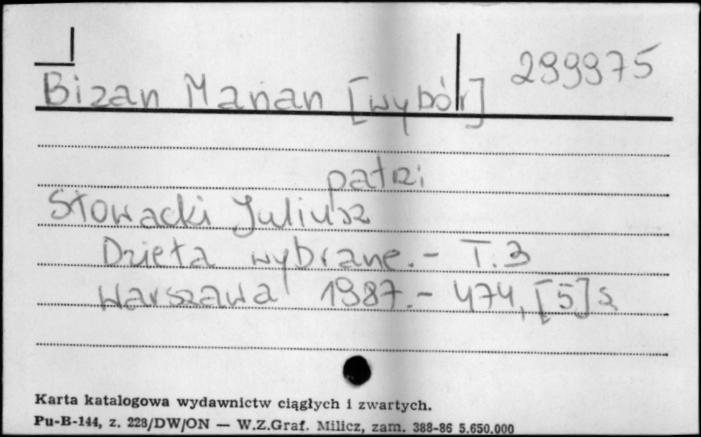 299975
Bizan Marian [wybór]
patrz
Słowacki Juliusz
Dzieła wybrane. - T. 3
Warszawa 1987. - 474, [5] s
Karta katalogowa wydawnictw ciągłych i zwartych.
Pu-B-144, z. 228/DW/ON — W.Z.Graf. Milicz, zam. 388-86 5.650.000